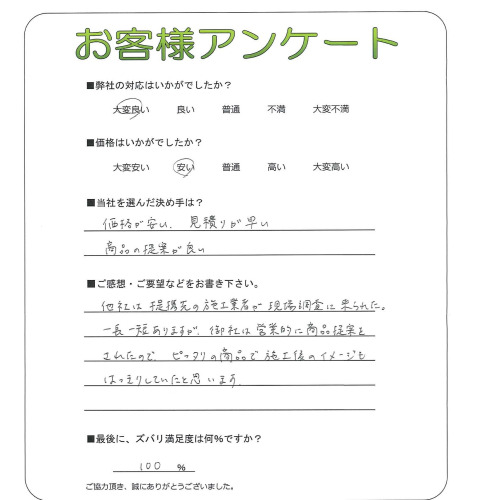 お客様アンケート
■弊社の対応はいかがでしたか？
大変良い 良い 普通 不満 大変不満
■価格はいかがでしたか？
大変安い 安い 普通 高い 大変高い
■当社を選んだ決め手は？
価格が安い、見積りが早い
商品の提案が良い
■ご感想・ご要望などをお書き下さい。
他社は提携先の施工業者が現場調査に来られた。
一長一短ありますが、御社は営業的に商品提案を
されたので ピッタリの商品で施工後のイメージも
はっきりしていたと思います。
■最後に、ズバリ満足度は何%ですか？
100 %
ご協力頂き、誠にありがとうございました。